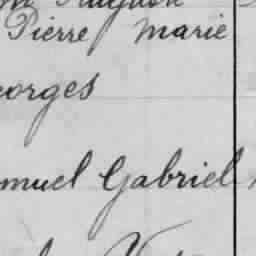 Pierre Marie
eorges
muel Gabriel